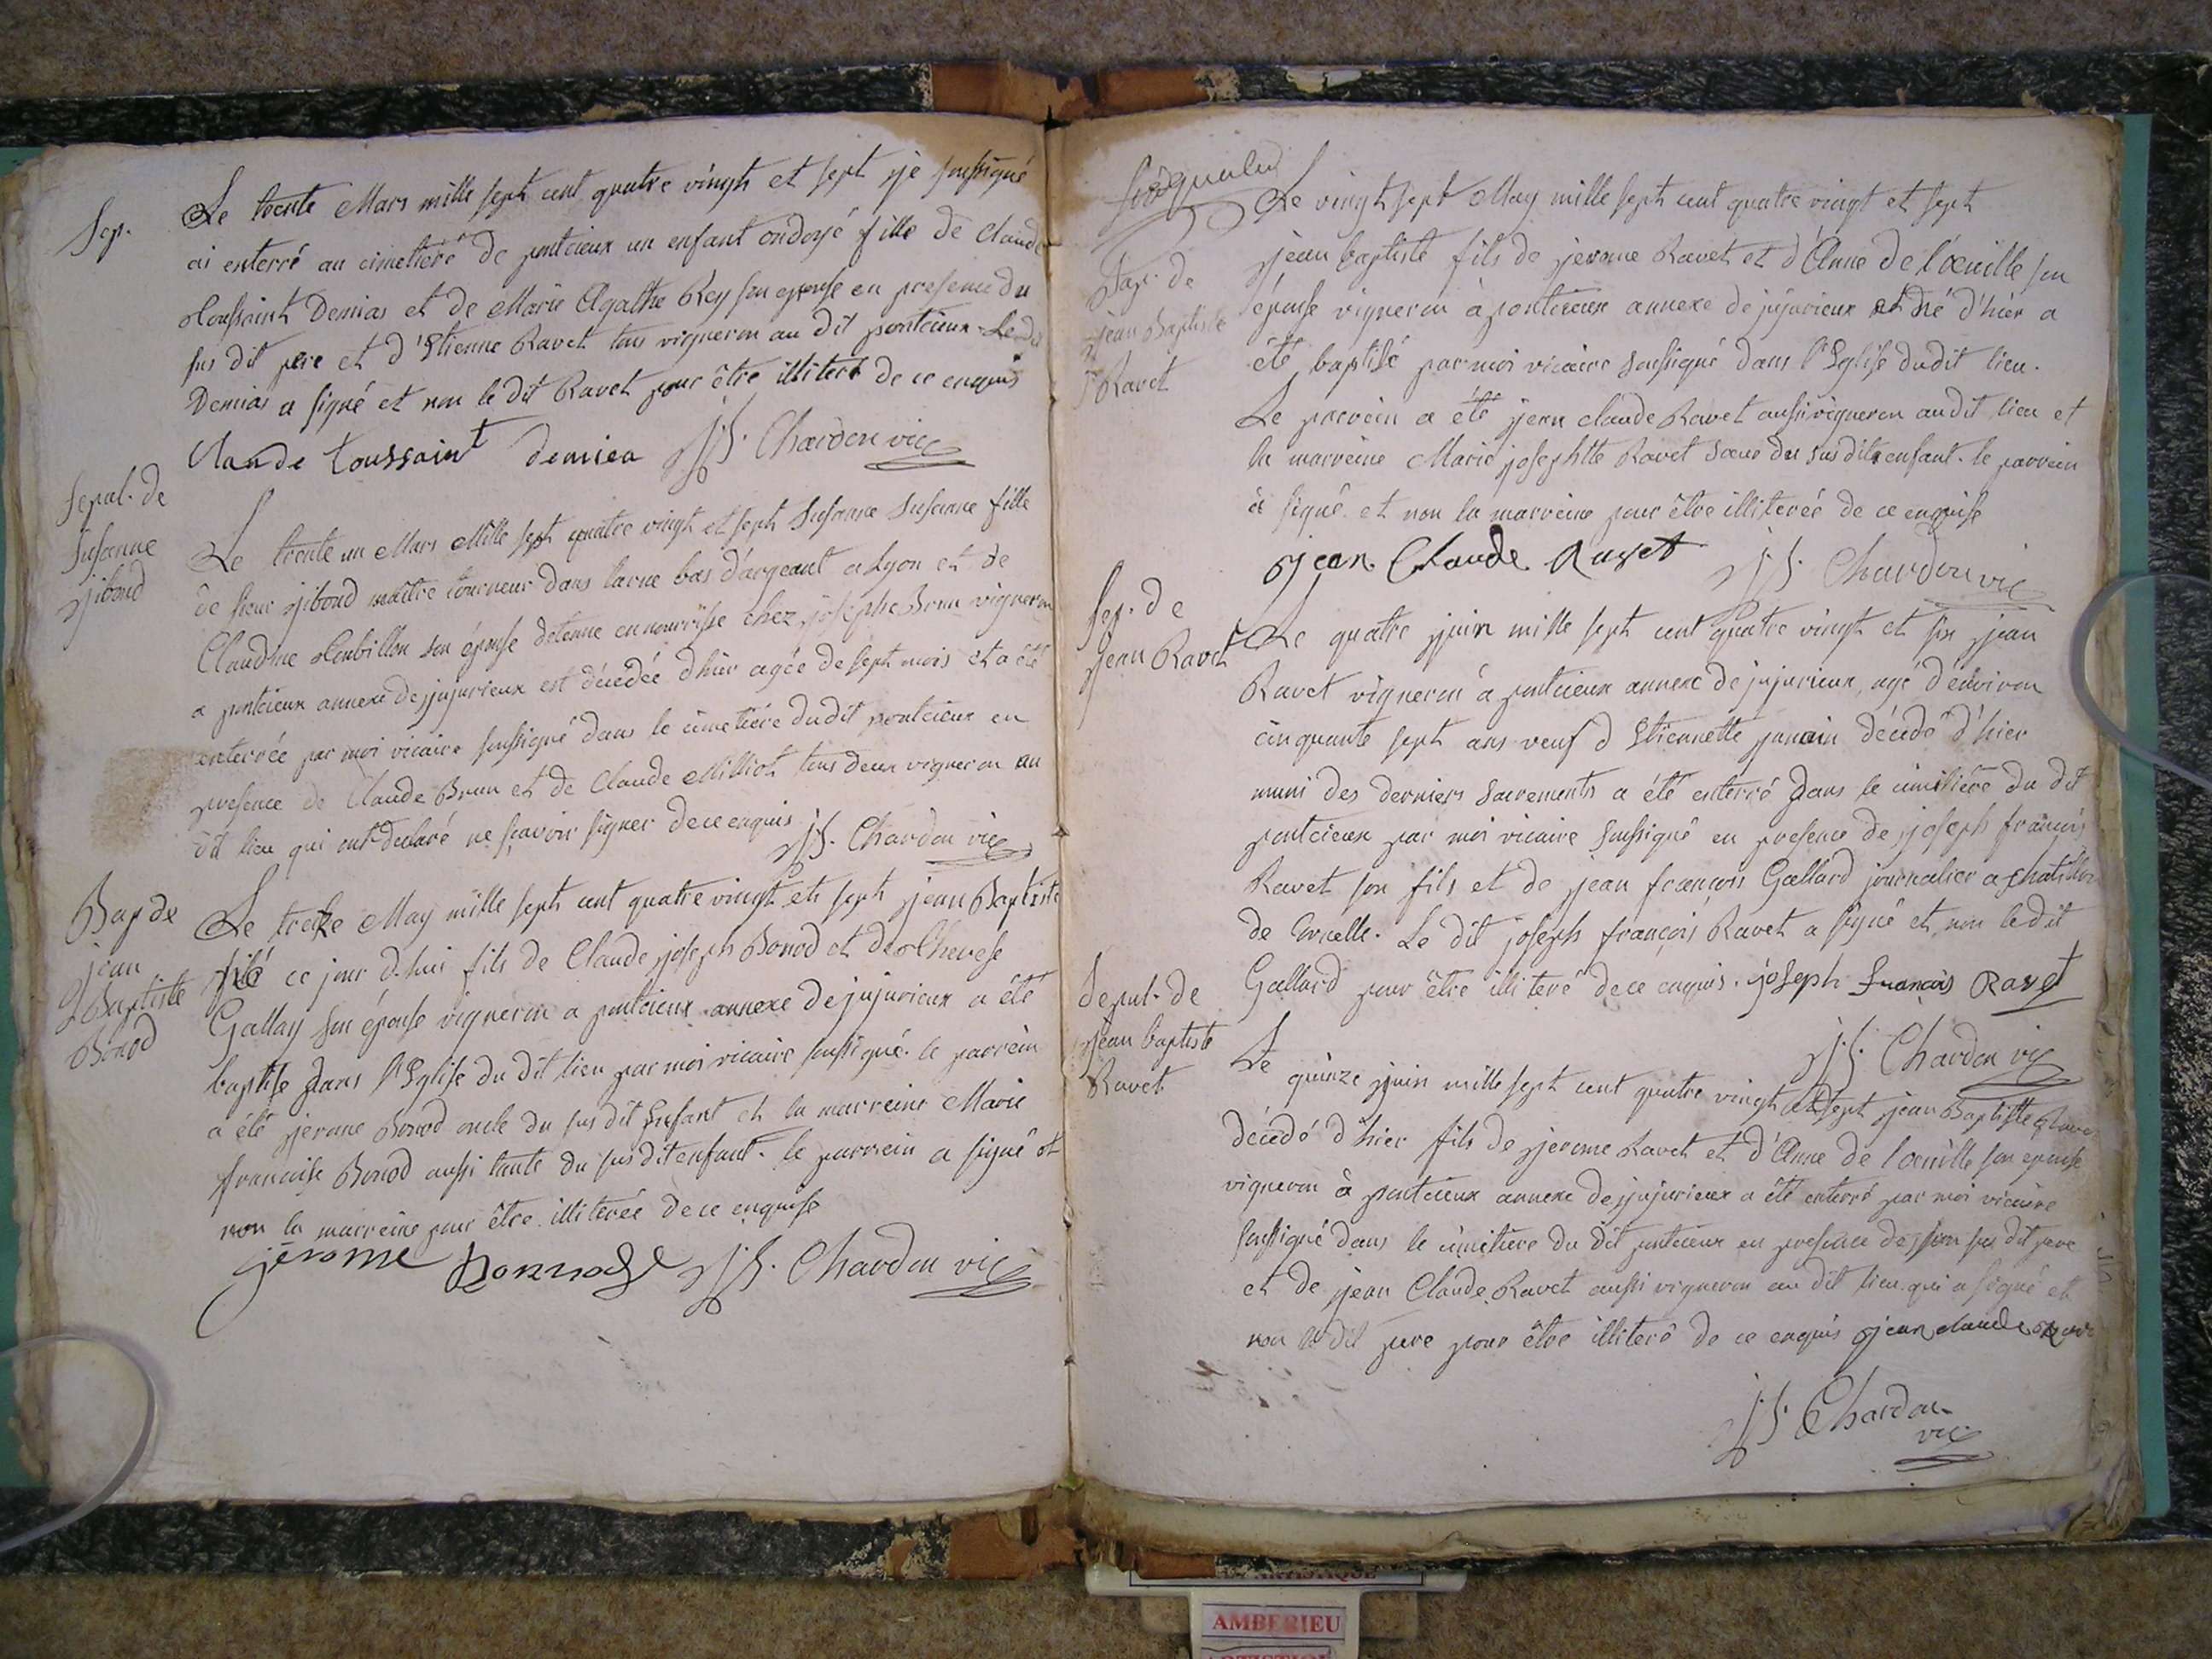 Sep.
Le trente Mars mille sept cent quatre vingt et sept je soussigné
ai enterré au cimetiere de pontcieux un enfant ondoyé fille de Claude
toussaint Demias et de Marie Agathe Rey son epouse en presence du
sus dit pere et d'Etienne Ravet tous vigneron au dit pontcieux. Le dit
Demias a signé et non le dit Ravet pour être illiteré de ce enquis
Claude toussaint demiea J.S. Chardon vic
Sepul. de
Susanne
jiboud
Le trente un Mars Mille sept quatre vingt et sept Susanne Susanne fille
de sieur jiboud maître tourneur dans larue bas d'argeant a Lyon et de
Claudine son épouse detenue en nourrisse chez josephe Brun vigneron
a pontcieux annexe de jujurieux est décedée d'hier agée de sept mois et a été
enterrée par moi vicaire soussigné dans le cimetiére du dit pontcieux en
presence de Claude Brun et de Claude Milliot tous deux vigneron au
dit lieu qui ont declaré ne sçavoir signer de ce enquis
J.S. Chardon vic
Bap de
jean
Baptiste
Bonod
Le treize May mille sept cent quatre vingt et sept jean Baptiste
né ce jour d'hui fils de Claude joseph Bonod et de Therese
Gallay son épouse vigneron a pontcieux annexe de jujurieux a été
baptise dans l'Eglise du dit lieu par moi vicaire soussigné. le parrein
a été jerome Bonod oncle du sus dit Enfant et la marreine Marie
francoise Bonod aussi tante du sus dit enfant. le parrein a signé et
non la marreine pour être illiterée de ce enquise
jerome J.S. Chardon vic
Le vingt sept May mille sept cent quatre vingt et sept
Bap. de
jean Baptiste
Ravet
jean baptiste fils de jerome Ravet et d'Anne de l'oeuille son
épouse vigneron à pontcieux annexe de jujurieux et né d'hier a
été baptisé par moi vicaire soussigné dans l'Eglise dudit lieu.
Le parrein a été jean claude Ravet aussi vigneron au dit lieu et
la marreine Marie josephtte Ravet soeur du sus dit enfant. le parrein
a signé et non la marreine pour être illiterée de ce enquise
jean Claude Ravet J.S. Chardon vic
Sep. de
jean Ravet
Le quatre juin mille sept cent quatre vingt et six jean
Ravet vigneron à pontcieux annexe de jujurieux, agé d'environ
cinquante sept ans veuf d Etiennette décédé d'hier
muni des derniers Sacrements a été enterré dans le cimitiére du dit
pontcieux par moi vicaire soussigné en presence de joseph françois
Ravet son fils et de jean françois Gallard journalier a chatillon
de Corcelle. Le dit joseph françois Ravet a signé et non le dit
Gallard pour être illiteré de ce enquis. joseph francois Ravet
J.S. Chardon vic
Sepul. de
jean baptiste
Ravet
Le quinze juin mille sept cent quatre vingt et sept jean Baptiste Ravet
décédé d'hier fils de jerome Ravet et d'Anne de l'oeuille son epouse
vigneron à pontcieux annexe de jujurieux a été enterré par moi vicaire
soussigné dans le cimitiere du dit pontcieux en presence de son sus dit pere
et de jean Claude Ravet aussi vigneron au dit lieu qui a signé et
non le dit pere pour être illiteré de ce enquis jean claude Rav
J.S Chardon
vic
AMBERIEU